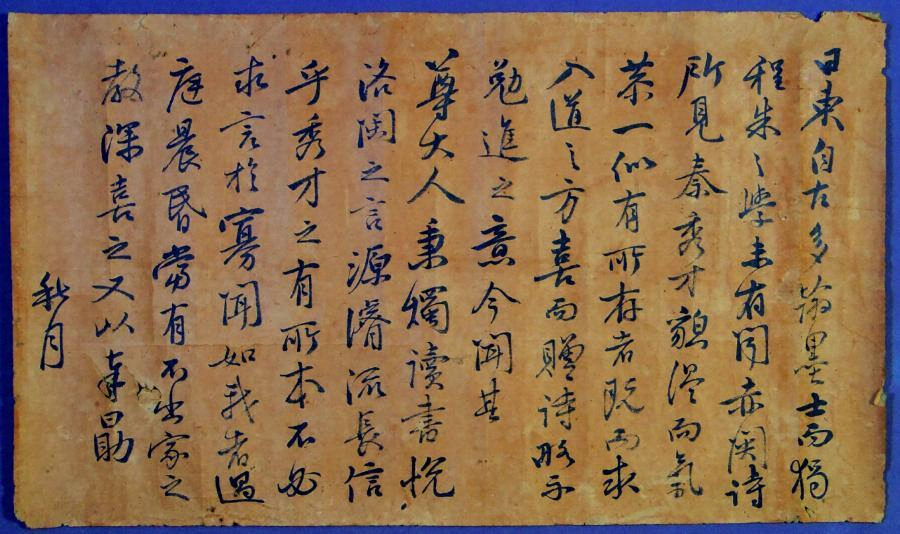 日東自古多翰墨士而獨
程朱之學未有聞赤関詩
所見秦秀才貌溫而氣
恭一似有所存者既而求
入道之方喜而贈詩略示
勉進之意今聞其
尊大人秉燭讀書悅
洛閩之言源濬流長信
乎秀才之有所本不必
求言於寡聞如我者過
庭晨昏當有不出家之
教深喜之又以奉勖
秋月